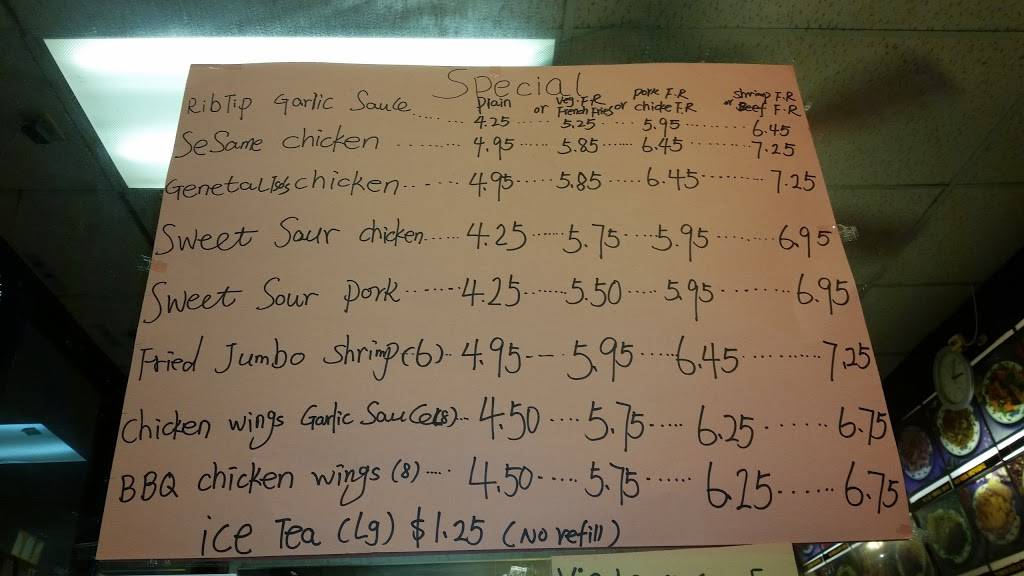 Special
Plain or Veg. F.R or pork F.R or shrimp F.R
French Fries chicke F.R Beef F.R
RibTip Garlic Sauce ........ 4.25 ..... 5.25 ...... 5.95 ......... 6.45
SeSame chicken ......... 4.95 ..... 5.85 ...... 6.45 ........ 7.25
chicken ...... 4.95 ..... 5.85 ..... 6.45 ........ 7.25
Sweet Sour chicken ...... 4.25 ...... 5.75 ... 5.95 ........ 6.95
Sweet Sour pork ....... 4.25 ...... 5.50 .... 5.95 ........ 6.95
Fried Jumbo shrimp (6) .. 4.95 --- 5.95 .... 6.45 .......... 7.25
Chicken wings Garlic Sauce (8) ... 4.50 .... 5.75 .... 6.25 ...... 6.75
BBQ chicken wings (8) .... 4.50 ..... 5.75 ...... 6.25 ...... 6.75
ice Tea (Lg) $1.25 (No refill)